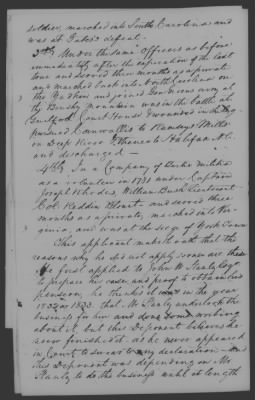 soldier marched into South Carolina and
was at Gates's defeat.
3rd Under the same Officers as before
immediately after the expiration of the last
tour and served three months as a private
and marched back into North Carolina on
the Yadkin and joined Gen Greens army at
the Brushy mountain was in the battle at
Guilford Court House & wounded in the
pursued Cornwallis to Ramseys Mills
on Deep River & thence to Halifax N.C.
and discharged
4th In a Company of Duke militia
as a volunteer in 1781 under Captain
Joseph Rhodes, William Bush Lieutenant
Col. Reddin Blount, and served three
months as a private, marched into Vir-
ginia, and was at the siege of York Town
This applicant maketh oath that the
reasons why he did not apply sooner are these
He first applied to John W Stanly Esqr
to prepare his case and proof to obtain his
pension, he thinks it was in the year
1832 or 1833. that Mr Stanly undertook the
business for him and done some writing
about it, but this Deponent believes he
never finished it. as he never appeared
in Court to swear to any declaration.
this Deponent was depending on Mr
Stanly to do the business until at length